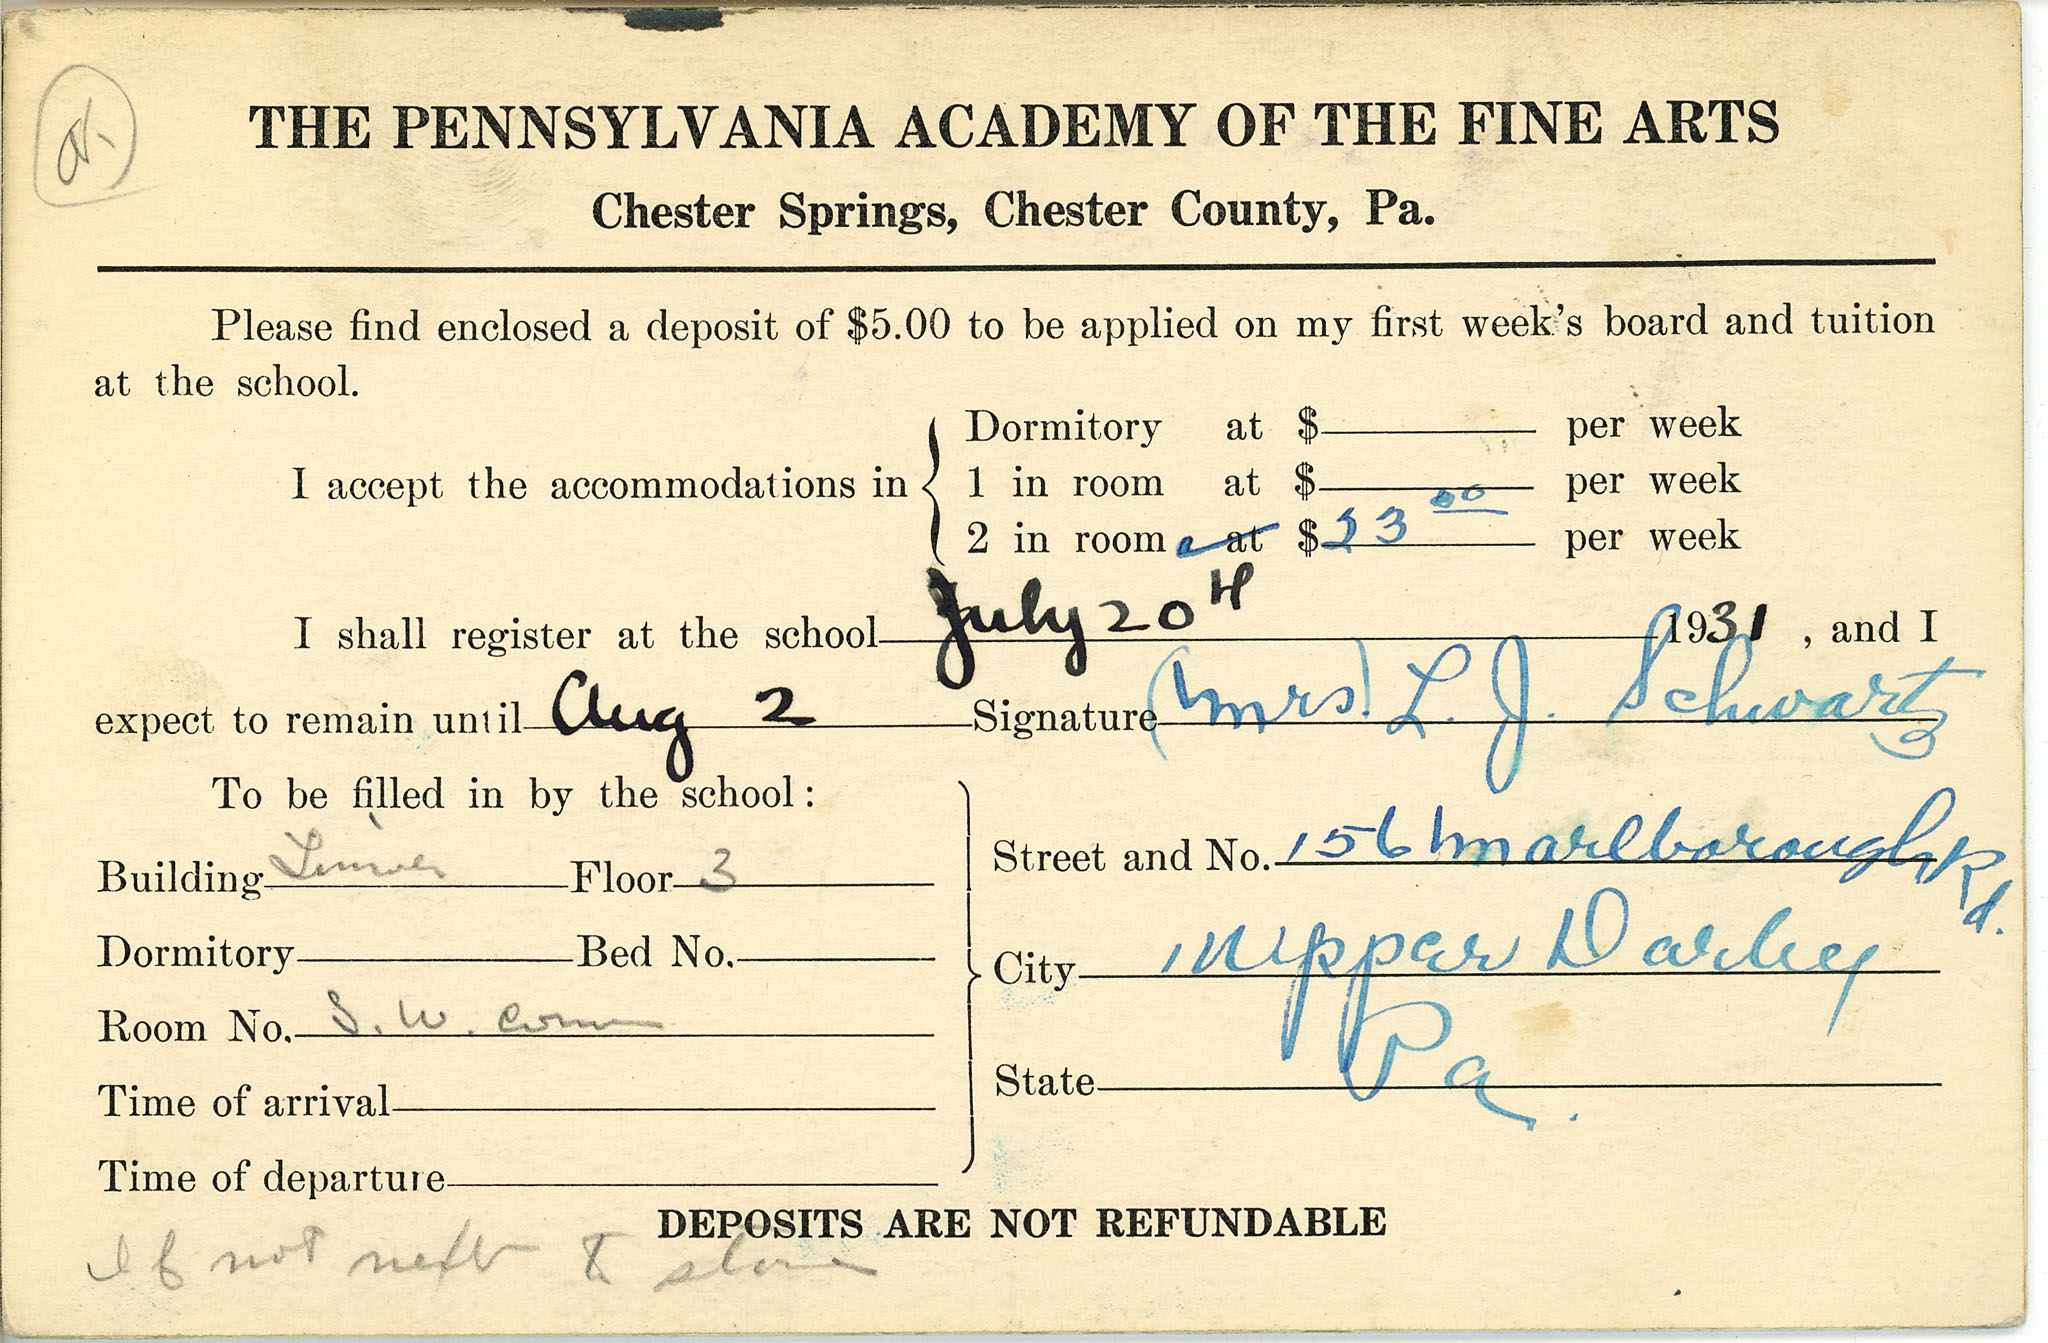 THE PENNSYLVANIA ACADEMY OF THE FINE ARTS
Chester Springs, Chester County, Pa.
Please find enclosed a deposit of $5.00 to be applied on my first week's board and tuition
at the school.
I accept the accommodations in
Dormitory at $ per week
1 in room at $ per week
2 in room at $ 23 00 per week
I shall register at the school July 20th 1931, and I
expect to remain until Aug 2 Signature (Mrs.) L. J. Schwartz
To be filled in by the school:
Building Floor 3
Dormitory Bed No.
Room No. S. W. Corner
Time of arrival
Time of departure
Street and No. 156 Marlborough Rd.
City Upper Darby
State Pa.
DEPOSITS ARE NOT REFUNDABLE
If not next